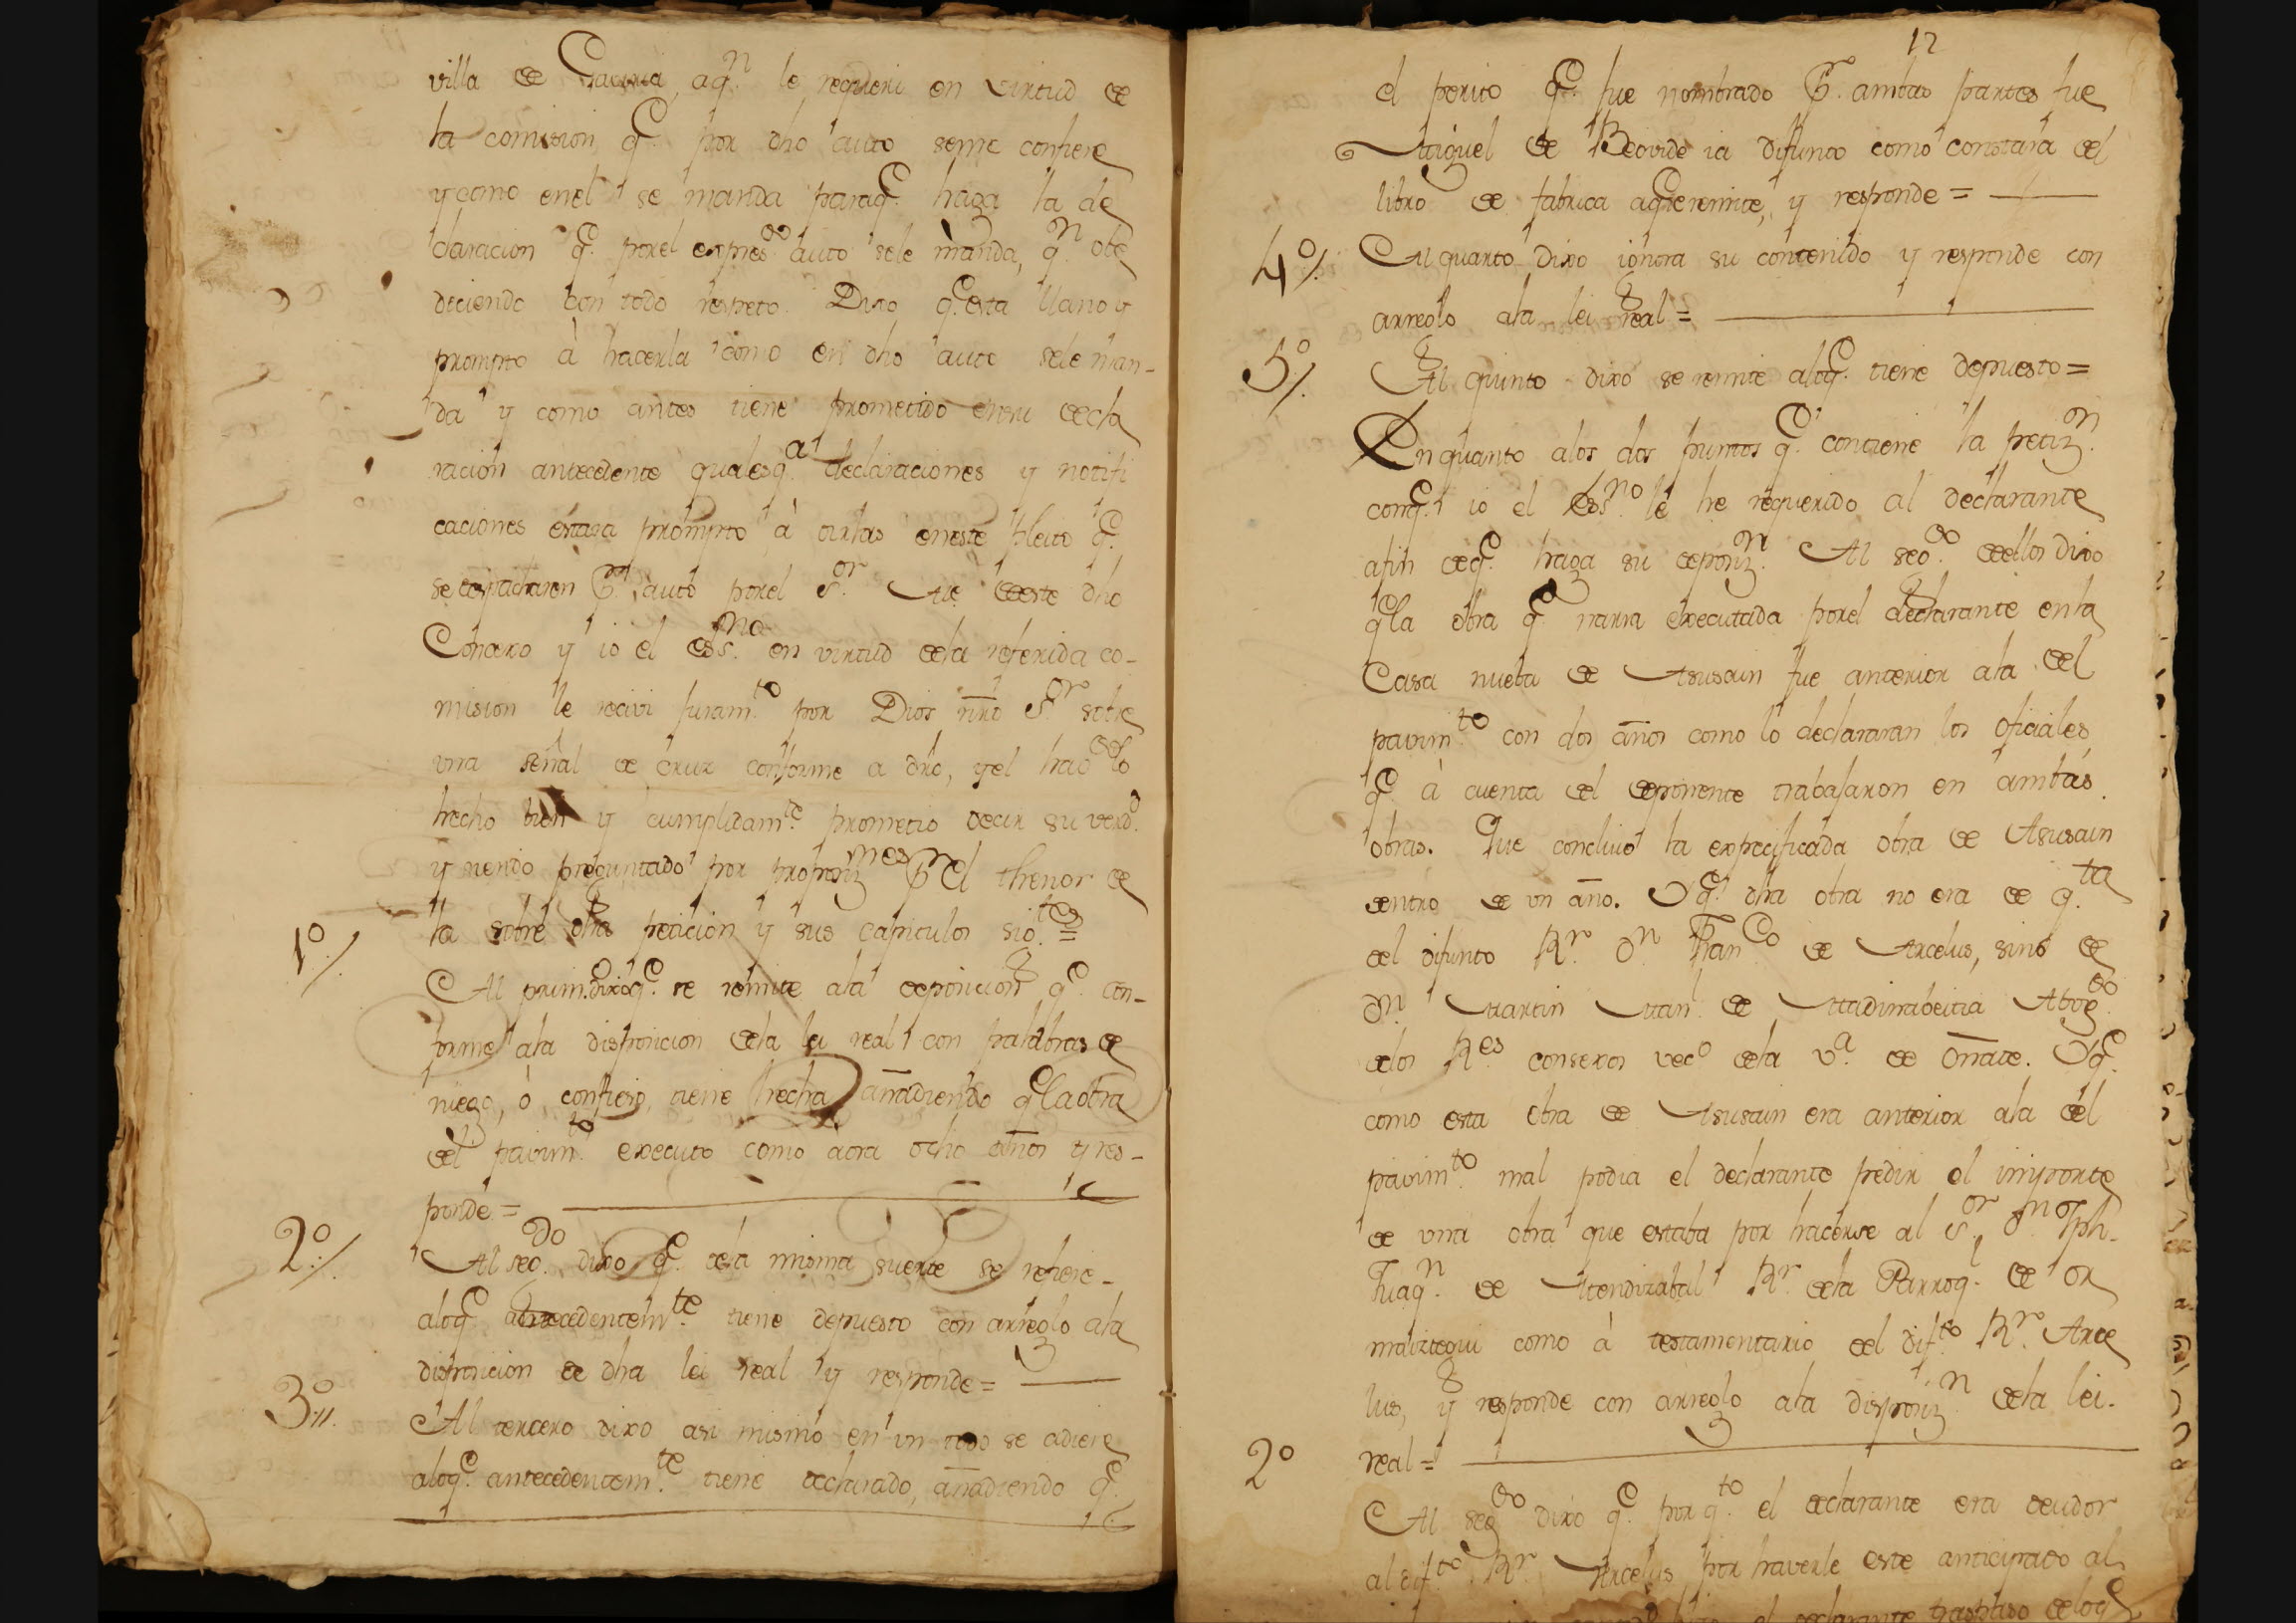 villa de Gaviria, aqn. le requeri en virtud de
la comision qe. por dho auto seme confiere
y como enel se manda paraqe. haga la de
claracion qe. porel expresdo auto sele manda, qn. obe
deciendo con todo respeto Dixo qe. esta llano y
prompto à hacerla como en dho auto sele man-
da y como antes tiene prometido ensu decla
racion antecedente qualesqa. declaraciones y notifi
caciones estara prompto à oirlas eneste pleito qe.
se despacharen Pr. auto porel Sr. Ale. deeste dho
Conzexo y io el ess.no en virtud dela referida co-
mision le recivi juramto. por Dios nro Sor. sobre
una señal de cruz conforme a dro, y el haviendolo
hecho bien y cumplidamte. prometio decir su verd.
y siendo preguntado por proposiznes Pr. el thenor de
la sobre dha peticion y sus capitulos sigtes.=
1º./. Al primo. dixo qe. se remite ala deposicion qe. con-
forme ala disposicion dela lei real con palabras de
niego, ò confieso, tiene hecha añadiendo qe la obra
del pavimto. executo como aora ocho años y res-
ponde =
2º./. Al segdo. dixo qe. dela misma suerte se refiere
aloqe. antecedentemte. tiene depuesto con arreglo ala
disposicion de dha lei real y responde =
3º.//. Al tercero dixo asi mismo en un todo se adiere
aloqe. antecedentemte. tiene declarado, añadiendo qe.
12
el perito qe. fue nombrado Pr. ambas partes fue
Miguel de Beovide ia difunto como constara del
libro de fabrica aque remite, y responde =
4º/. Al quarto dixo ignora su contenido y responde con
arreglo ala lei real =
5º/. Al quinto dixo se remite aloqe. tiene depuesto =
En quanto alos dos puntos qe. contiene la petizn.
conqe. io el Ess.no le he requerido al declarante
afin deqe. haga su deposizn. Al segdo. deellos dixo
qe la obra qe. narra executada porel declarante enla
Casa nueba de Asusain fue anterior ala del
pavimto. con dos años como lo declararan los oficiales
qe. à cuenta del deponente trabajaron en ambas
obras. Que concluio la expecificada obra de Asusain
dentro de un año. Y qe. dha obra no era de qta.
del difunto Rr. Dn. Franco de Arcelus, sino de
Dn. Martin Manl. de Madinabeitia Abogdo.
delos Res consexos veco dela va. de Oñate. Y qe.
como esta obra de Asusain era anterior ala del
pavimto. mal podia el declarante pedir el importe
de una obra que estaba por hacerse al Sor. Dn Jph.
Juaqn. de Mendizabal Rr. dela Parroql. de Or
maiztegui como à testamentario del difto. Rr. Arce
lus, y responde con arreglo ala disposizn. dela lei
real =
2º Al segdo dixo qe. por qto. el declarante era deudor
al difto. Rr. Arcelus por haverle este anticipado al
el declarante traspaso deloqe